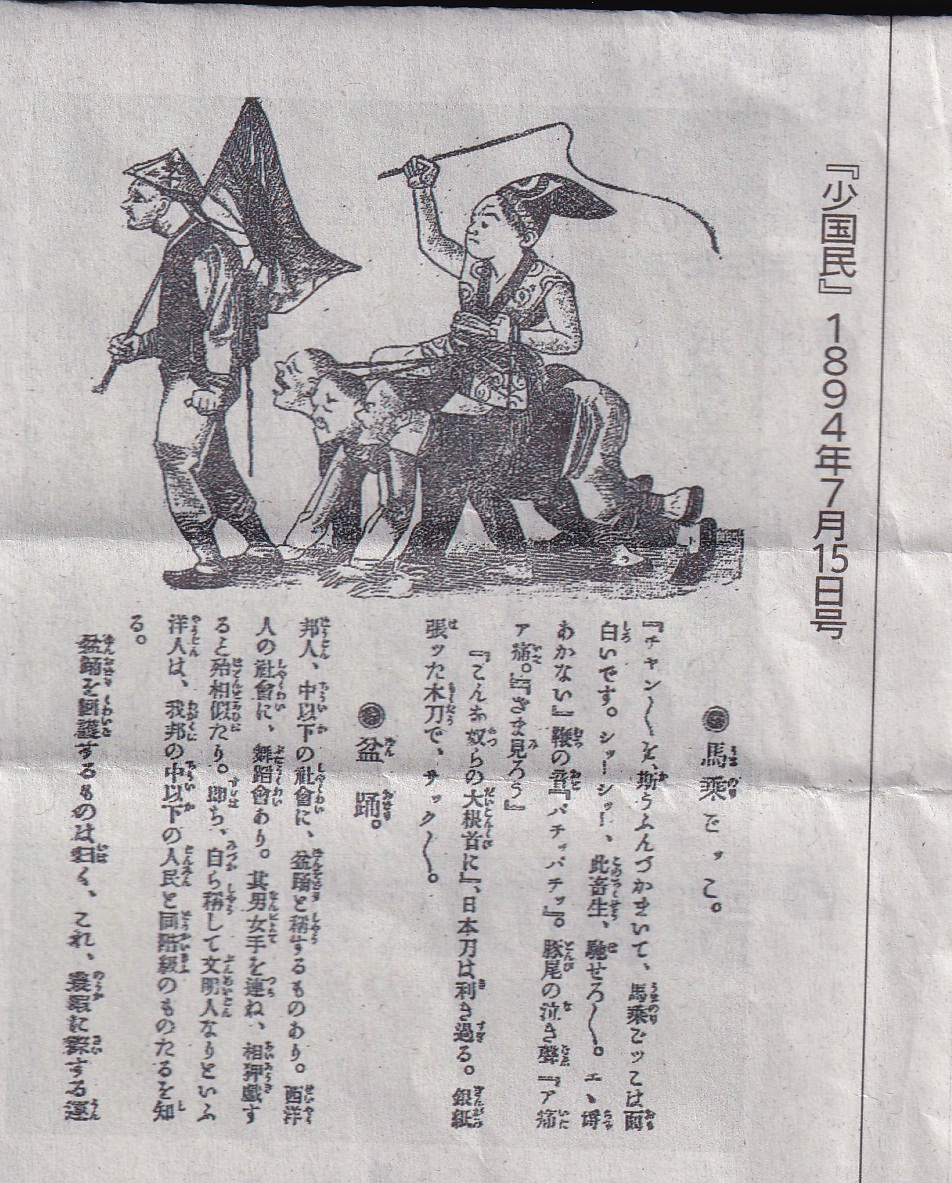 『少国民』1894年7月15日号
◉馬乗ごッこ。
『チャン〳〵を、斯うふんづかまいて、馬乗ごッこは面
白いです。シッー シッー、此畜生、馳せろ〳〵。エヽ埒
あかない』鞭の音『パチッパチッ』。豚尾の泣き聲『ア痛
ア痛。』『ざま見ろう』
『こんな奴らの大根首に』、日本刀は利き過る。銀紙
張ッた木刀で、サック〳〵。
◉盆踊。
邦人、中以下の社會に、盆踊と稱するものあり。西洋
人の社會に、舞蹈會あり。其男女手を連ね、相狎戯す
ると殆相似たり。即ち、自ら稱して文明人なりといふ
洋人は、我邦の中以下の人民と同階級のものたるを知
る。
盆踊を回護するものは曰く、これ、農暇に際する運